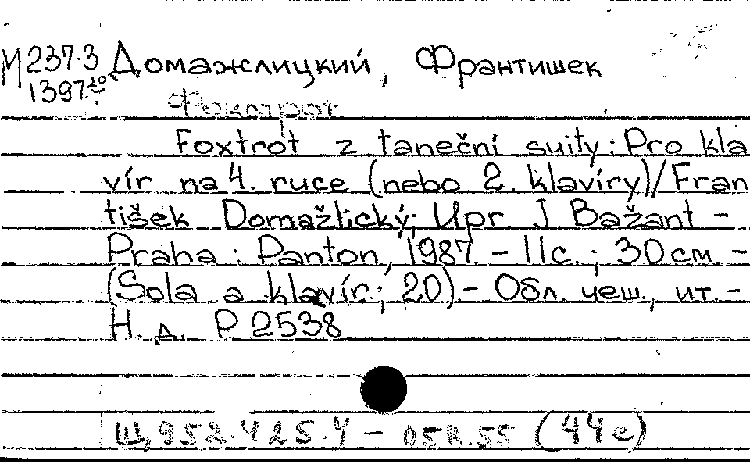 М 237-3 Домажлицкий, Франтишек
1397
Фокстрот
Foxtrot z taneční suity: Pro kla
vír na 4. ruce (nebo 2. klavíry)/Fran
tišek Domažlický; Upr. J Bažant -
Praha: Panton, 1987. - 11с.; 30 см. -
(Sola a klavír; 20). - Обл. чеш., ит. -
Н. д. P 2538
Щ,952.425.4 - 05я.55 (44е)